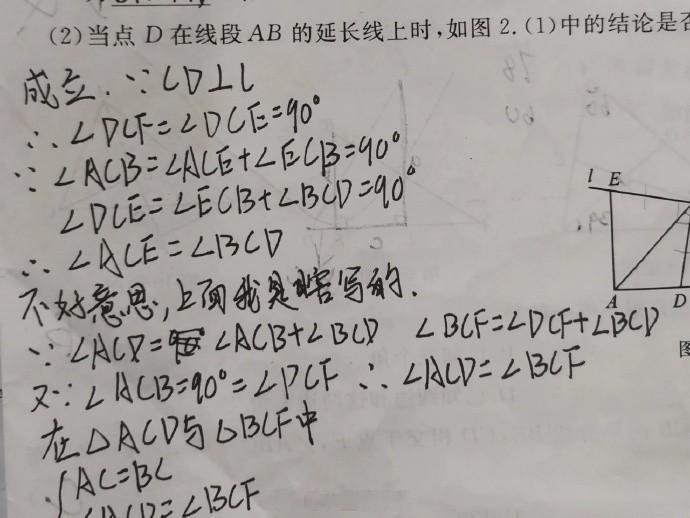 (2)当点 D 在线段 AB 的延长线上时,如图 2.(1)中的结论是否
成立. ∵ CD⊥l
∴ ∠DCF=∠DCE=90°
∵ ∠ACB=∠ACE+∠ECB=90°
∠DCE=∠ECB+∠BCD=90°
∴ ∠ACE=∠BCD
不好意思,上面我是瞎写的.
∵ ∠ACD= ∠ACB+∠BCD ∠BCF=∠DCF+∠BCD
又∵ ∠ACB=90°=∠DCF ∴ ∠ACD=∠BCF
在△ACD与△BCF中
AC=BC
∠ACD=∠BCF
l E
A D
图